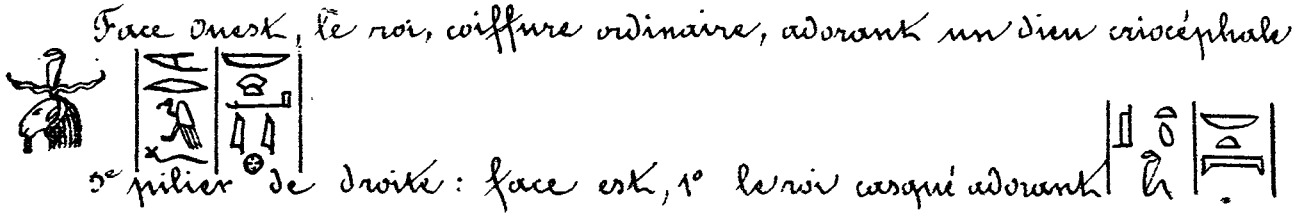 Face Ouest, le roi, coiffure ordinaire, adorant un dieu criocéphale
3e pilier de droite : face est, 1° le roi casqué adorant